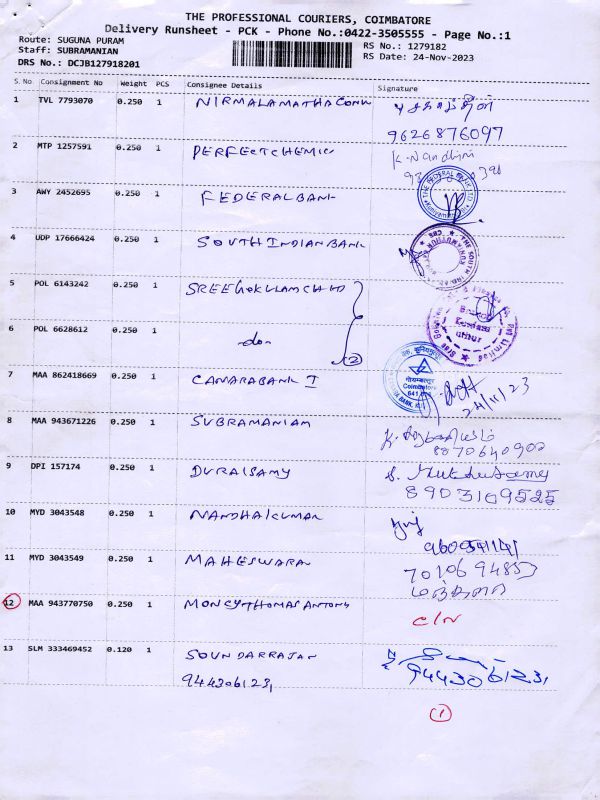 THE PROFESSIONAL COURIERS, COIMBATORE
Delivery Runsheet - PCK - Phone No.:0422-3505555 - Page No.:1
Route: SUGUNA PURAM
Staff: SUBRAMANIAN
DRS No.: DCJB127918201
RS No.: 1279182
RS Date: 24-Nov-2023
S. No Consignment No Weight PCS Consignee Details Signature
1 TVL 7793070 0.250 1 NIRMALAMATHA CONV
9626876097
2 MTP 1257591 0.250 1 PERFECTCHEMIC
K. Nandhini
3 AWY 2452695 0.250 1 FEDERALBANK
THE FEDERAL BANK LTD
4 UDP 17666424 0.250 1 SOUTHINDIANBANK
5 POL 6143242 0.250 1 SREEGOKULAMCH
6 POL 6628612 0.250 1 -do-
(2)
7 MAA 862418669 0.250 1 CANARABANK I
Coimbatore
641
24/11/23
8 MAA 943671226 0.250 1 SUBRAMANIAM
8870640902
9 DPI 157174 0.250 1 DURAISAMY
S. Muthusamy
8903109525
10 MYD 3043548 0.250 1 NANDHAKUMAR
11 MYD 3043549 0.250 1 MAHESWARAN
7010694853
12 MAA 943770750 0.250 1 MONCYTHOMASANTONY
C/N
13 SLM 333469452 0.120 1 SOUNDARRAJAN
9443061231
9443061231
(1)